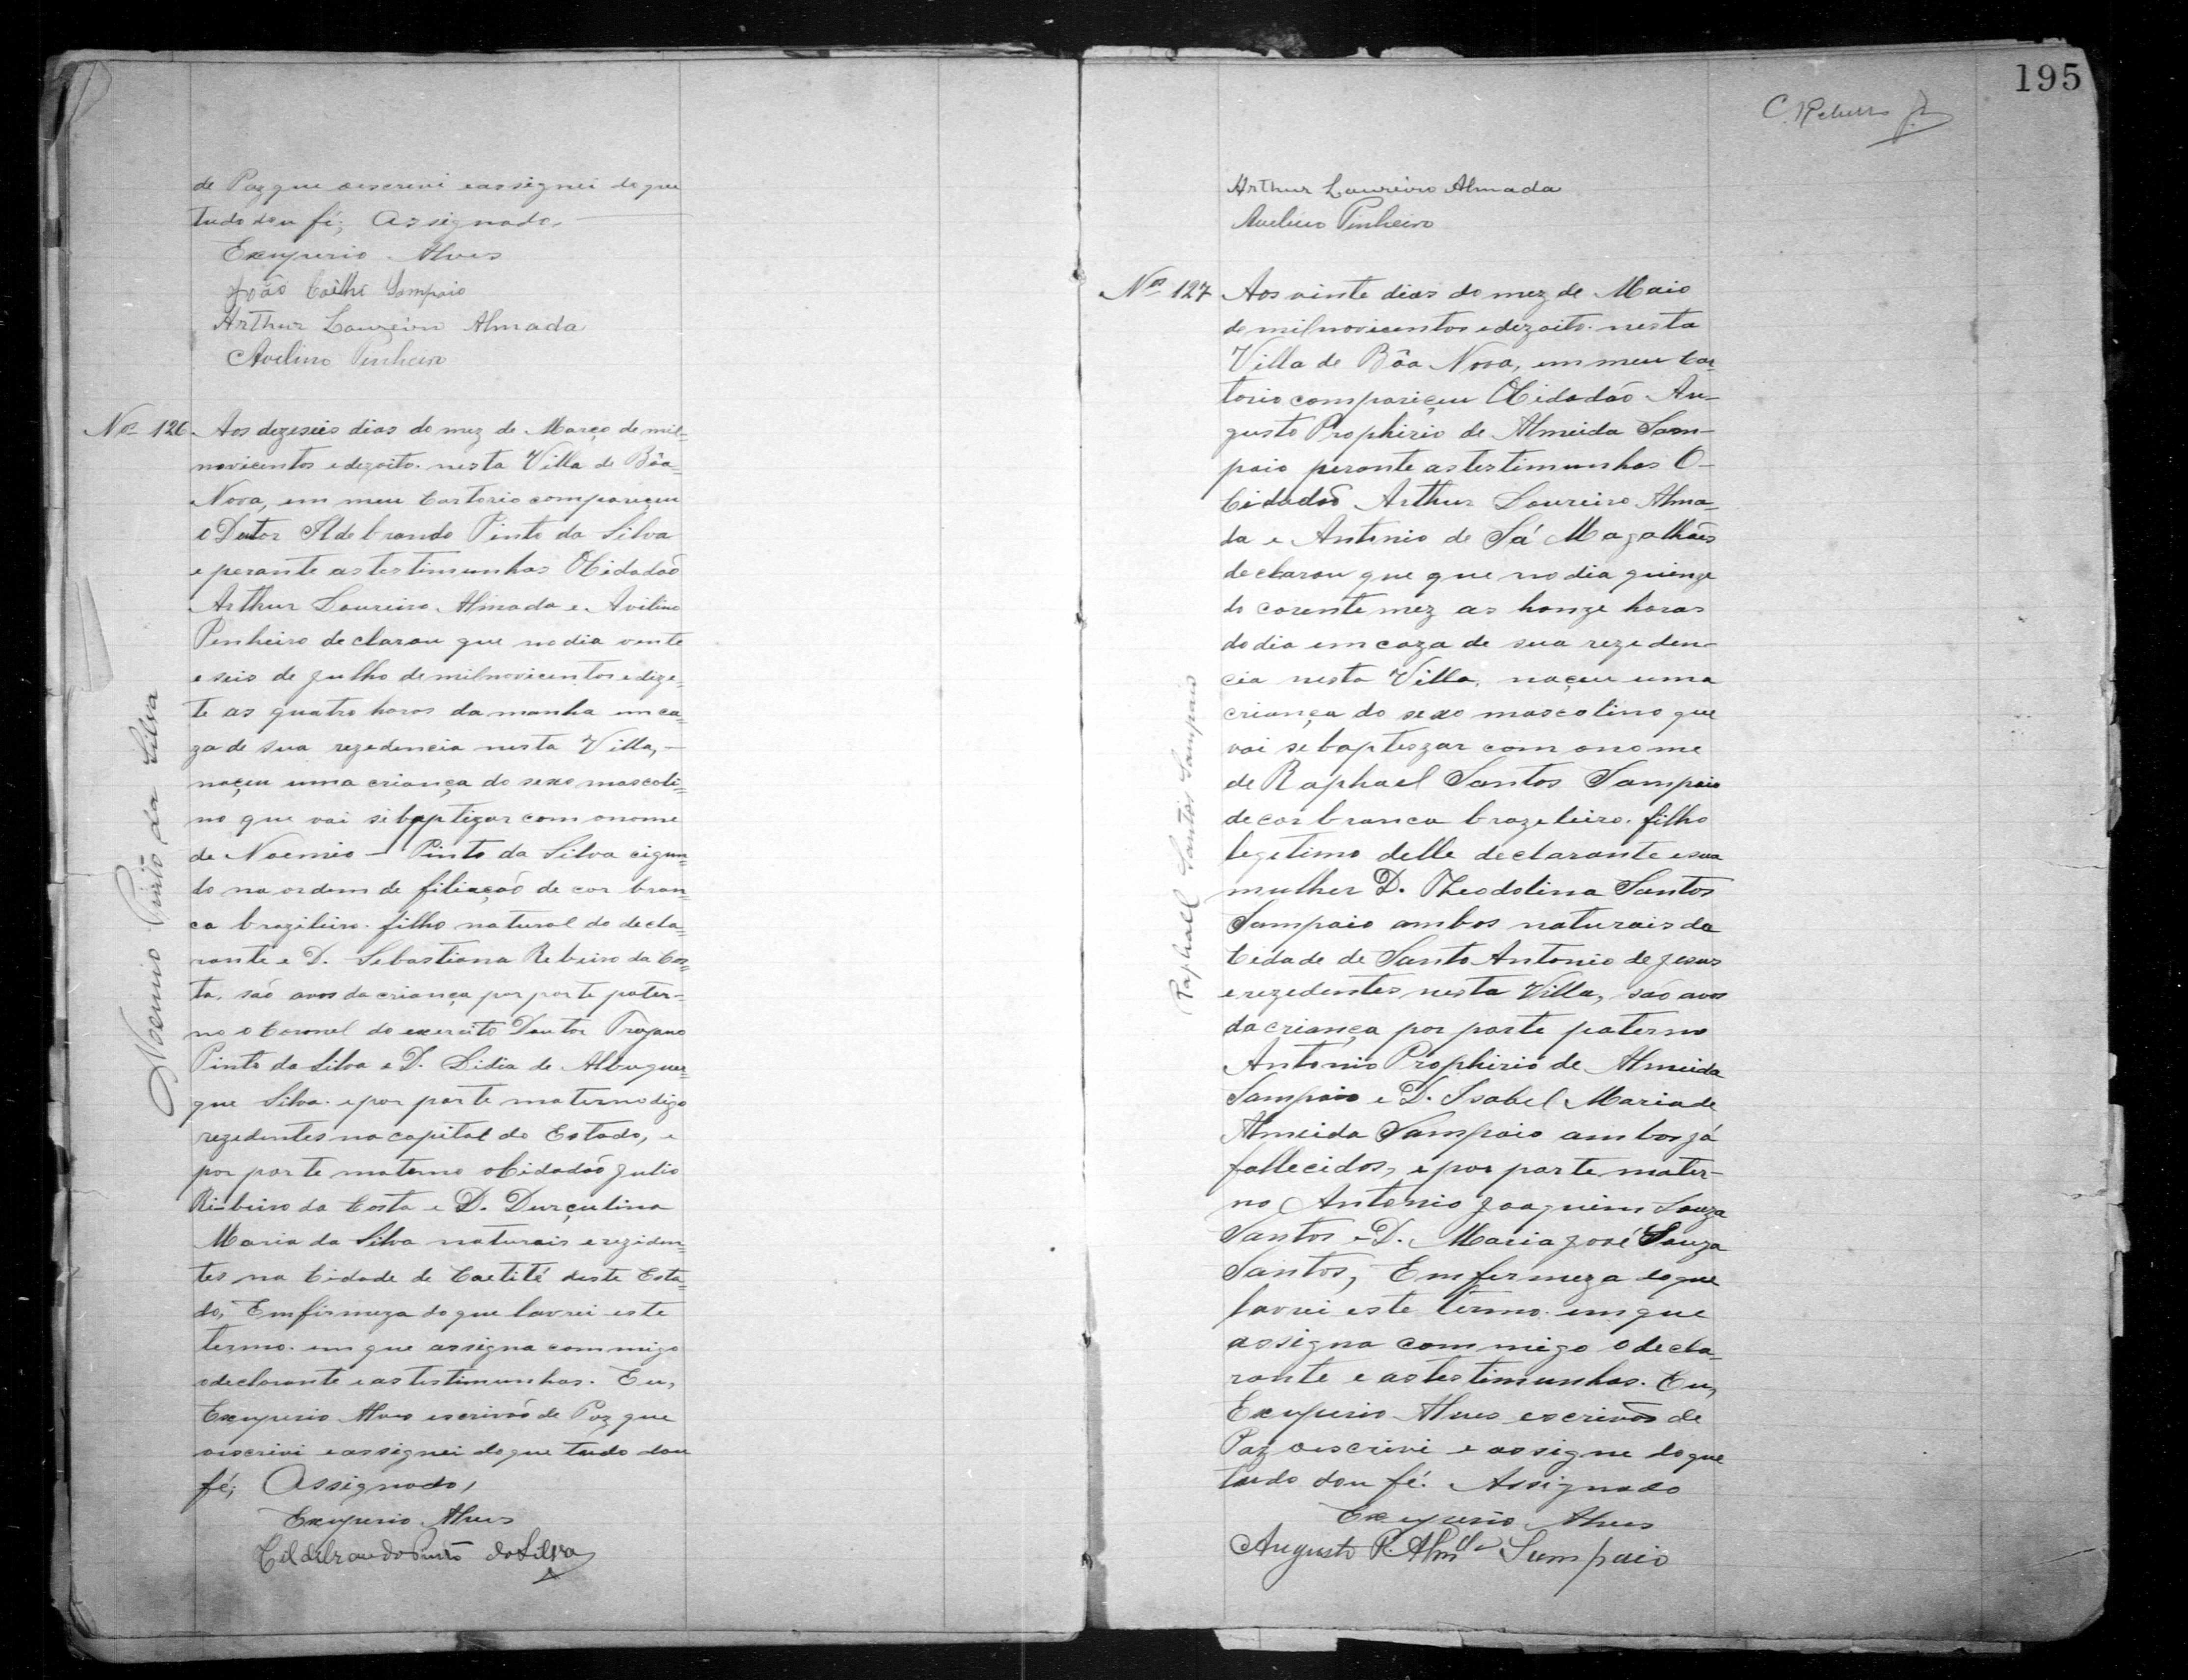 de Paz que oescrevi eassignei doque
tudo dou fé; Assignado.
Exuperio Alves
João Coêlho Sampaio
Arthur Loureiro Almada
Avelino Pinheiro
Noemio Pinto da Silva
Nº 126. Aos dezeseis dias do mez de Março de mil=
novicentos edezoito. nesta Villa de Bôa=
Nova, em meu Cartorio compareçeu
o Doutor Ildebrando Pinto da Silva
e perante as testimunhas OCidadaõ
Arthur Loureiro Almada e Avilino
Penheiro declarou que nodia vente
e seis de Julho de milnovicentos edeze=
te as quatro horas da manha emca=
za de sua rezedencia nesta Villa, —
naçeu uma criança do sexo mascoli=
no que vai sibaptizar com onome
de Noemio — Pinto da Silva cigun=
do na ordem de filiaçaõ de cor bran=
ca brazileiro. filho natural do decla=
rante e D. Sebastiana Rebeiro da Cos=
ta. saõ avos da criança por parte pater-
no o Coronel do exercito Doutor Trajano
Pinto da Silva e D. Lidia de Albuquer=
que Silva. epor parte materno digo
rezedentes na capital do Estado, e
por parte materno oCidadaõ Julio
Ribeiro da Costa e D. Durçulina
Maria da Silva naturais ereziden=
tes na Cidade de Caetité deste Esta=
do, Emfirmeza do que lavrei este
termo. em que assigna commigo
odeclarante eas testimunhas. Eu,
Exuperio Alves escrivaõ de Paz que
oescrivi eassignei doque tudo dou
fé; Assignado,
Exuperio Alves
Hildebrando Pinto da Silva
195
Arthur Loureiro Almada
Avelino Pinheiro
Raphael Santos Sampaio
Nº 127 Aos vinte dias do mez de Maio
de milnovicentos edezoito. nesta
Villa de Bôa Nova, em meu Car=
torio compariçeu OCidadaõ Au-
gusto Prophirio de Almeida Sam-
paio perante as testimunhas O-
Cidadaõ Arthur Loureiro Alma=
da e Antonio de Sá Magalhaẽs
declarou que que no dia quinze
do corente mez as honze horas
do dia em caza de sua rezeden-
cia nesta Villa, naçeu uma
criança do sexo mascolino que
vai sebaptiszar com onome
de Raphael Santos Sampaio
decor branca brazeleiro. filho
legetimo delle declarante esua
mulher D. Theodolina Santos
Sampaio ambos naturais da
Cidade de Santo Antonio de Jesus
erezedentes nesta Villa, saõ avos
da criança por parte paterno
Antonio Prophirio de Almeida
Sampaio e D. Isabel Maria de
Almeida Sampaio ambos já
fallecidos, e por parte mater-
no Antonio Joaquim Souza
Santos e D. Maria José Souza
Santos, Emfermeza doque
lavrei este termo. em que
assigna commigo odecla=
rante e as testimunhas. Eu,
Exuperio Alves escrivaõ de
Paz oescrivi e assigne doque
tudo dou fé. Assignado
Exuperio Alves
Augusto P. Almda Sampaio